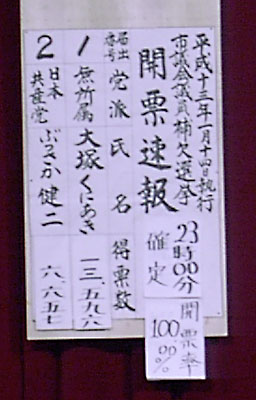 平成十三年一月十四日執行
市議会議員補欠選挙
開票速報
23時00分
確定
開票率
100.00%
届出番号
党派
氏名
得票数
1
無所属
大塚くにあき
一三、五九六
2
日本共産党
ぶさか健二
六、六五七